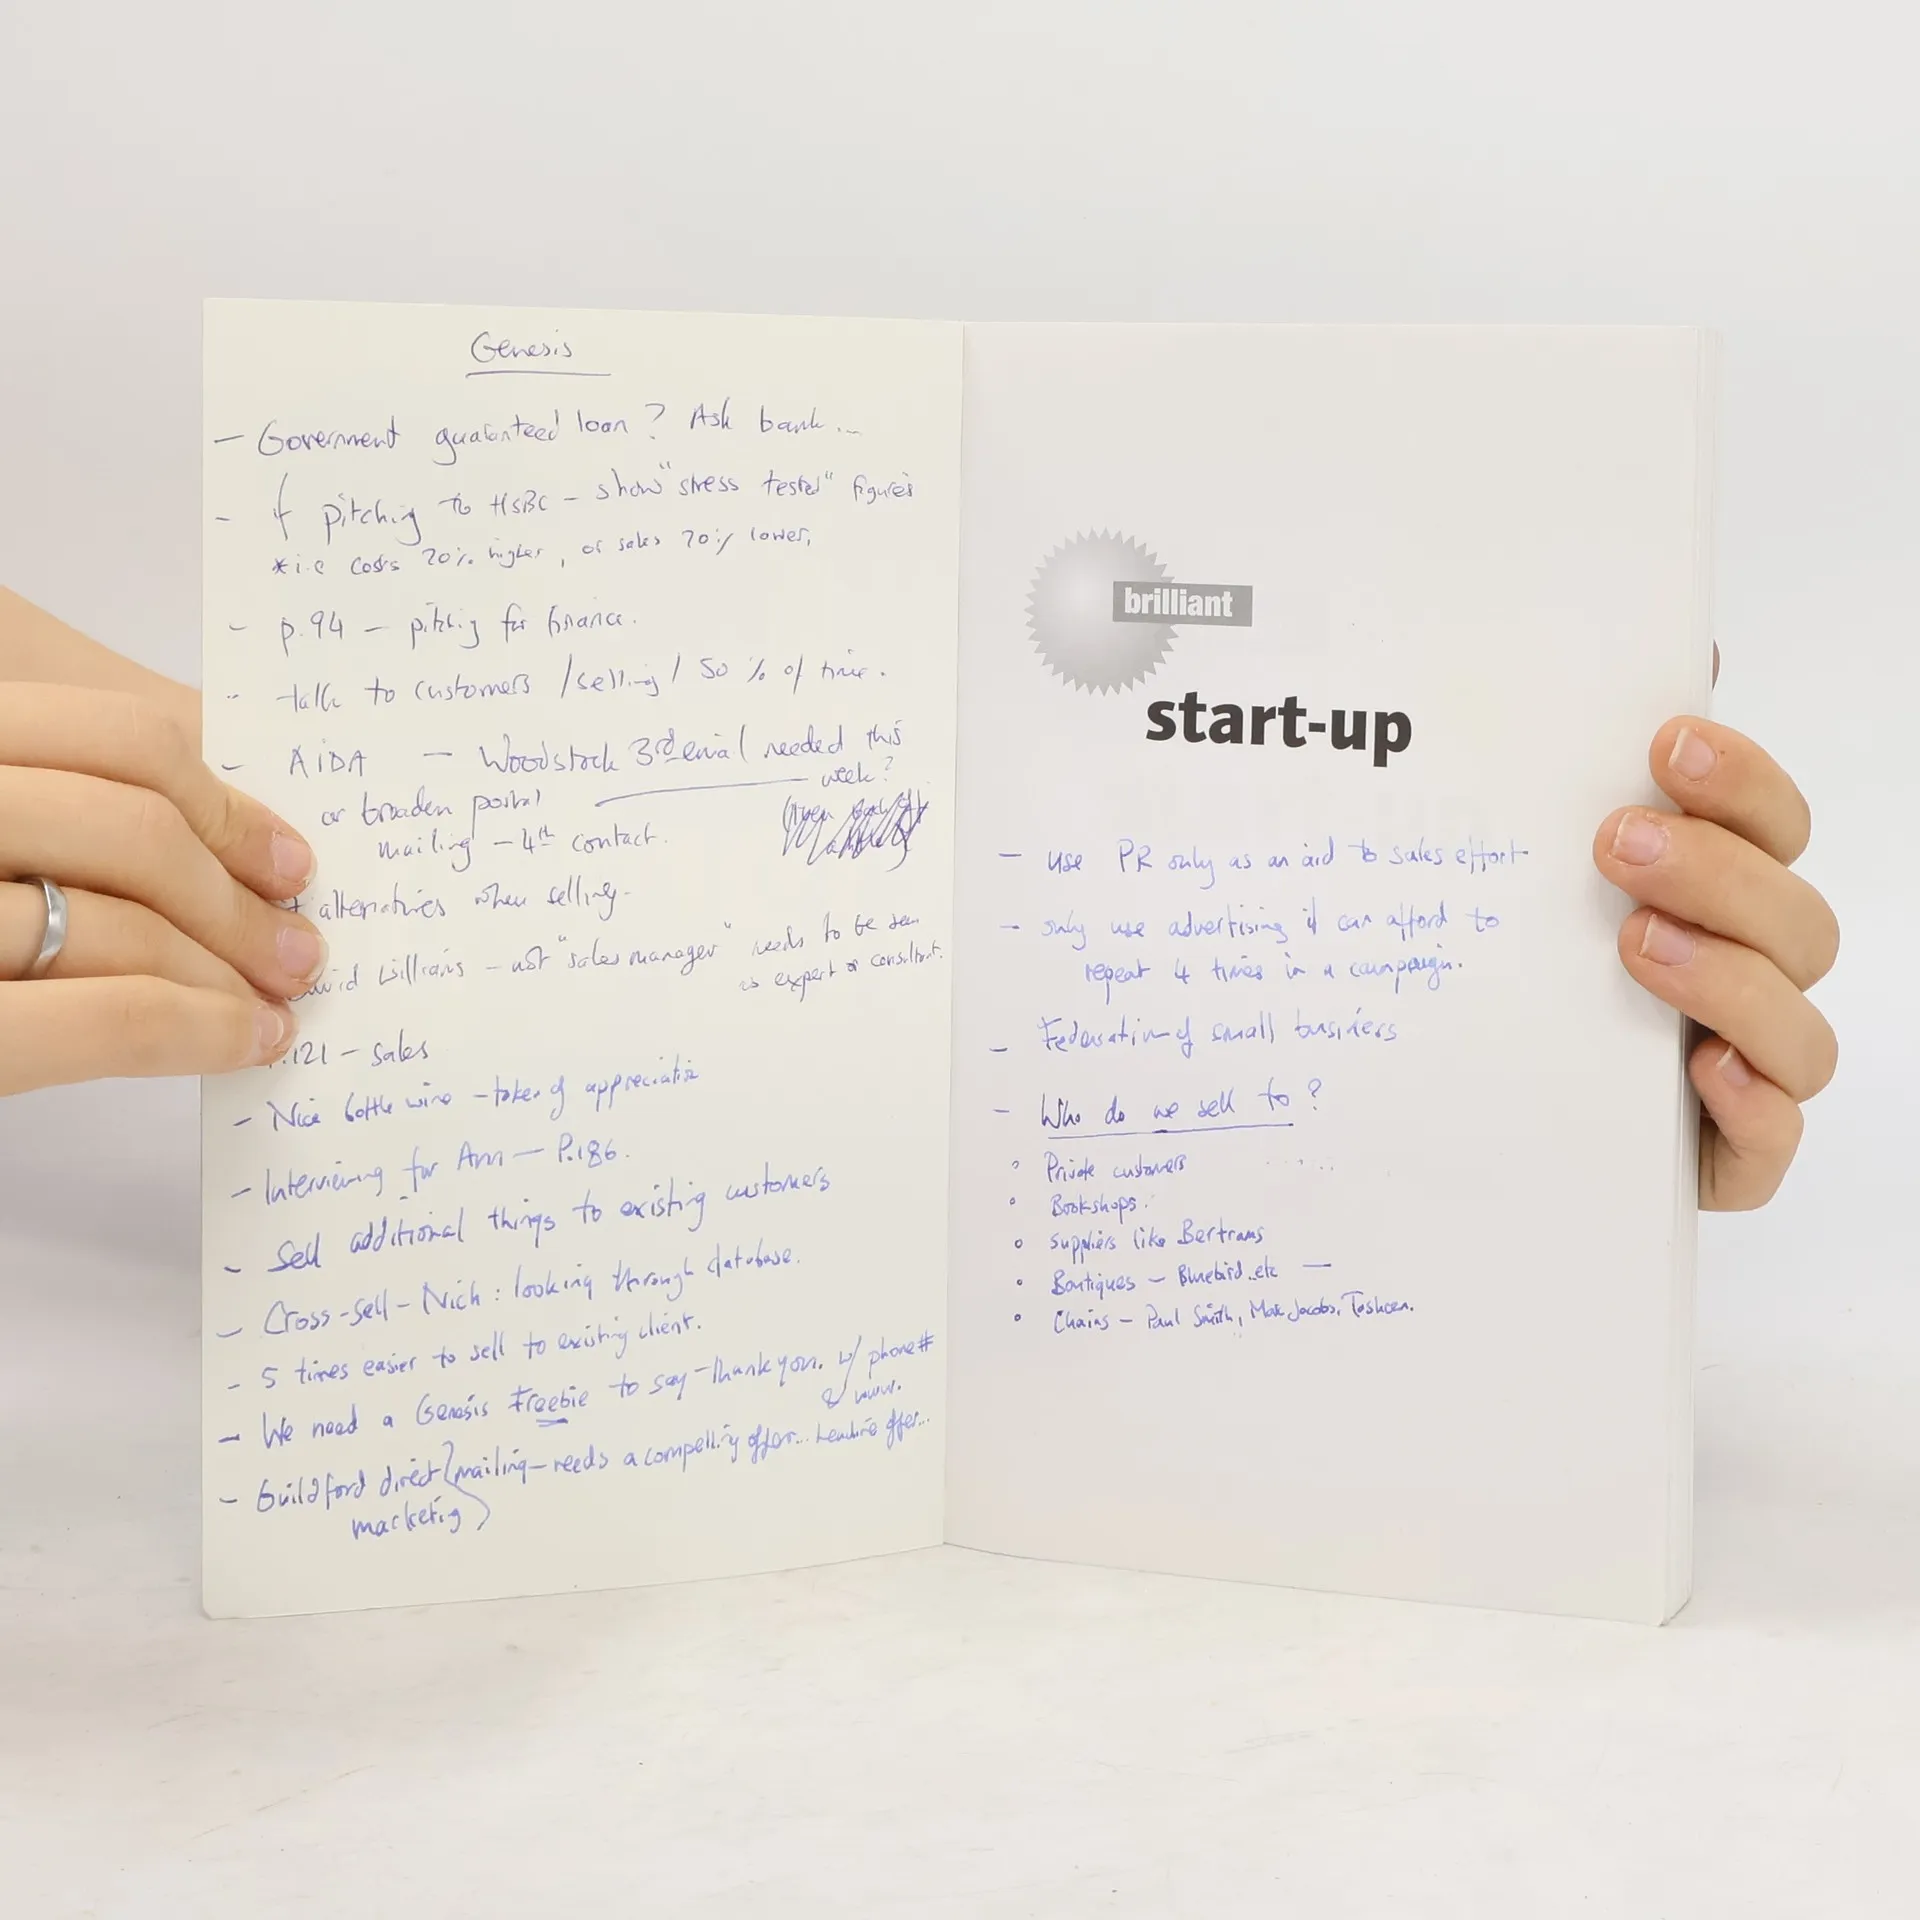 Genesis
– Government guaranteed loan? Ask bank...
– If pitching to HSBC – show "stress tested" figures
*i.e costs 20% higher, or sales 20% lower,
– p.94 – pitching for finance.
– talk to customers /selling/ 50% of time.
– AIDA – Woodstock 3rd email needed this week?
or broaden postal
mailing – 4th contact.
alternatives when selling.
Williams – not "sales manager" needs to be seen
as expert or consultant.
121 – sales
– Nice bottle wine – token of appreciation
– Interviewing for Ann – P.186.
– Sell additional things to existing customers
– Cross-sell – Nich: looking through database.
– 5 times easier to sell to existing client.
– We need a Genesis Freebie to say – thank you. w/ phone #
& www.
– Guildford direct mailing – needs a compelling offer... headline offer...
marketing
brilliant
start-up
– use PR only as an aid to sales effort
– only use advertising if can afford to
repeat 4 times in a campaign.
– Federation of small business
– Who do we sell to?
° Private customers
° Bookshops.
° suppliers like Bertrams
° Boutiques – Bluebird etc –
° Chains – Paul Smith, Marc Jacobs, Taschen.